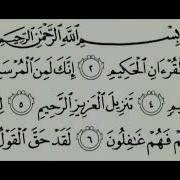 بِسْمِ ٱللَّهِ ٱلرَّحْمَٰنِ ٱلرَّحِيمِ
لْقُرْءَانِ ٱلْحَكِيمِ ٢ إِنَّكَ لَمِنَ ٱلْمُرْسَ
ـيمٍ ٤ تَنزِيلَ ٱلْعَزِيزِ ٱلرَّحِيمِ ٥
ـمْ فَهُمْ غَٰفِلُونَ ٦ لَقَدْ حَقَّ ٱلْقَوْلُ